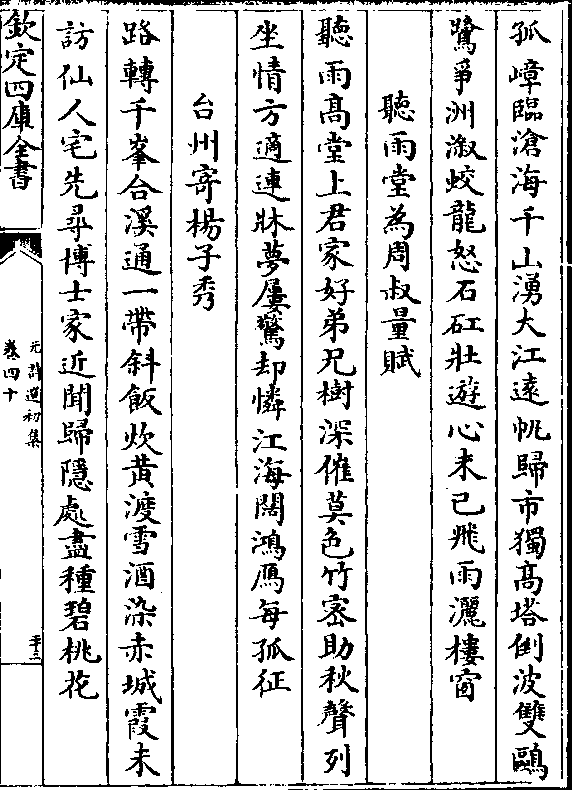 孤嶂臨滄海千山湧大江遠帆歸市獨髙塔倒波雙鷗
鷺爭洲溆蛟龍怒石矼壯遊心未已飛雨灑樓窗
聽雨堂為周叔量賦
聽雨髙堂上君家好弟兄樹深催莫色竹宻助秋聲列
坐情方適連牀夢屢驚却憐江海闊鴻鴈每孤征
台州寄楊子秀
路轉千峯合溪通一帶斜飯炊黄渡雪酒染赤城霞未
訪仙人宅先尋博士家近聞歸隱處盡種碧桃花
欽定四庫全書
元詩選初集
卷四十